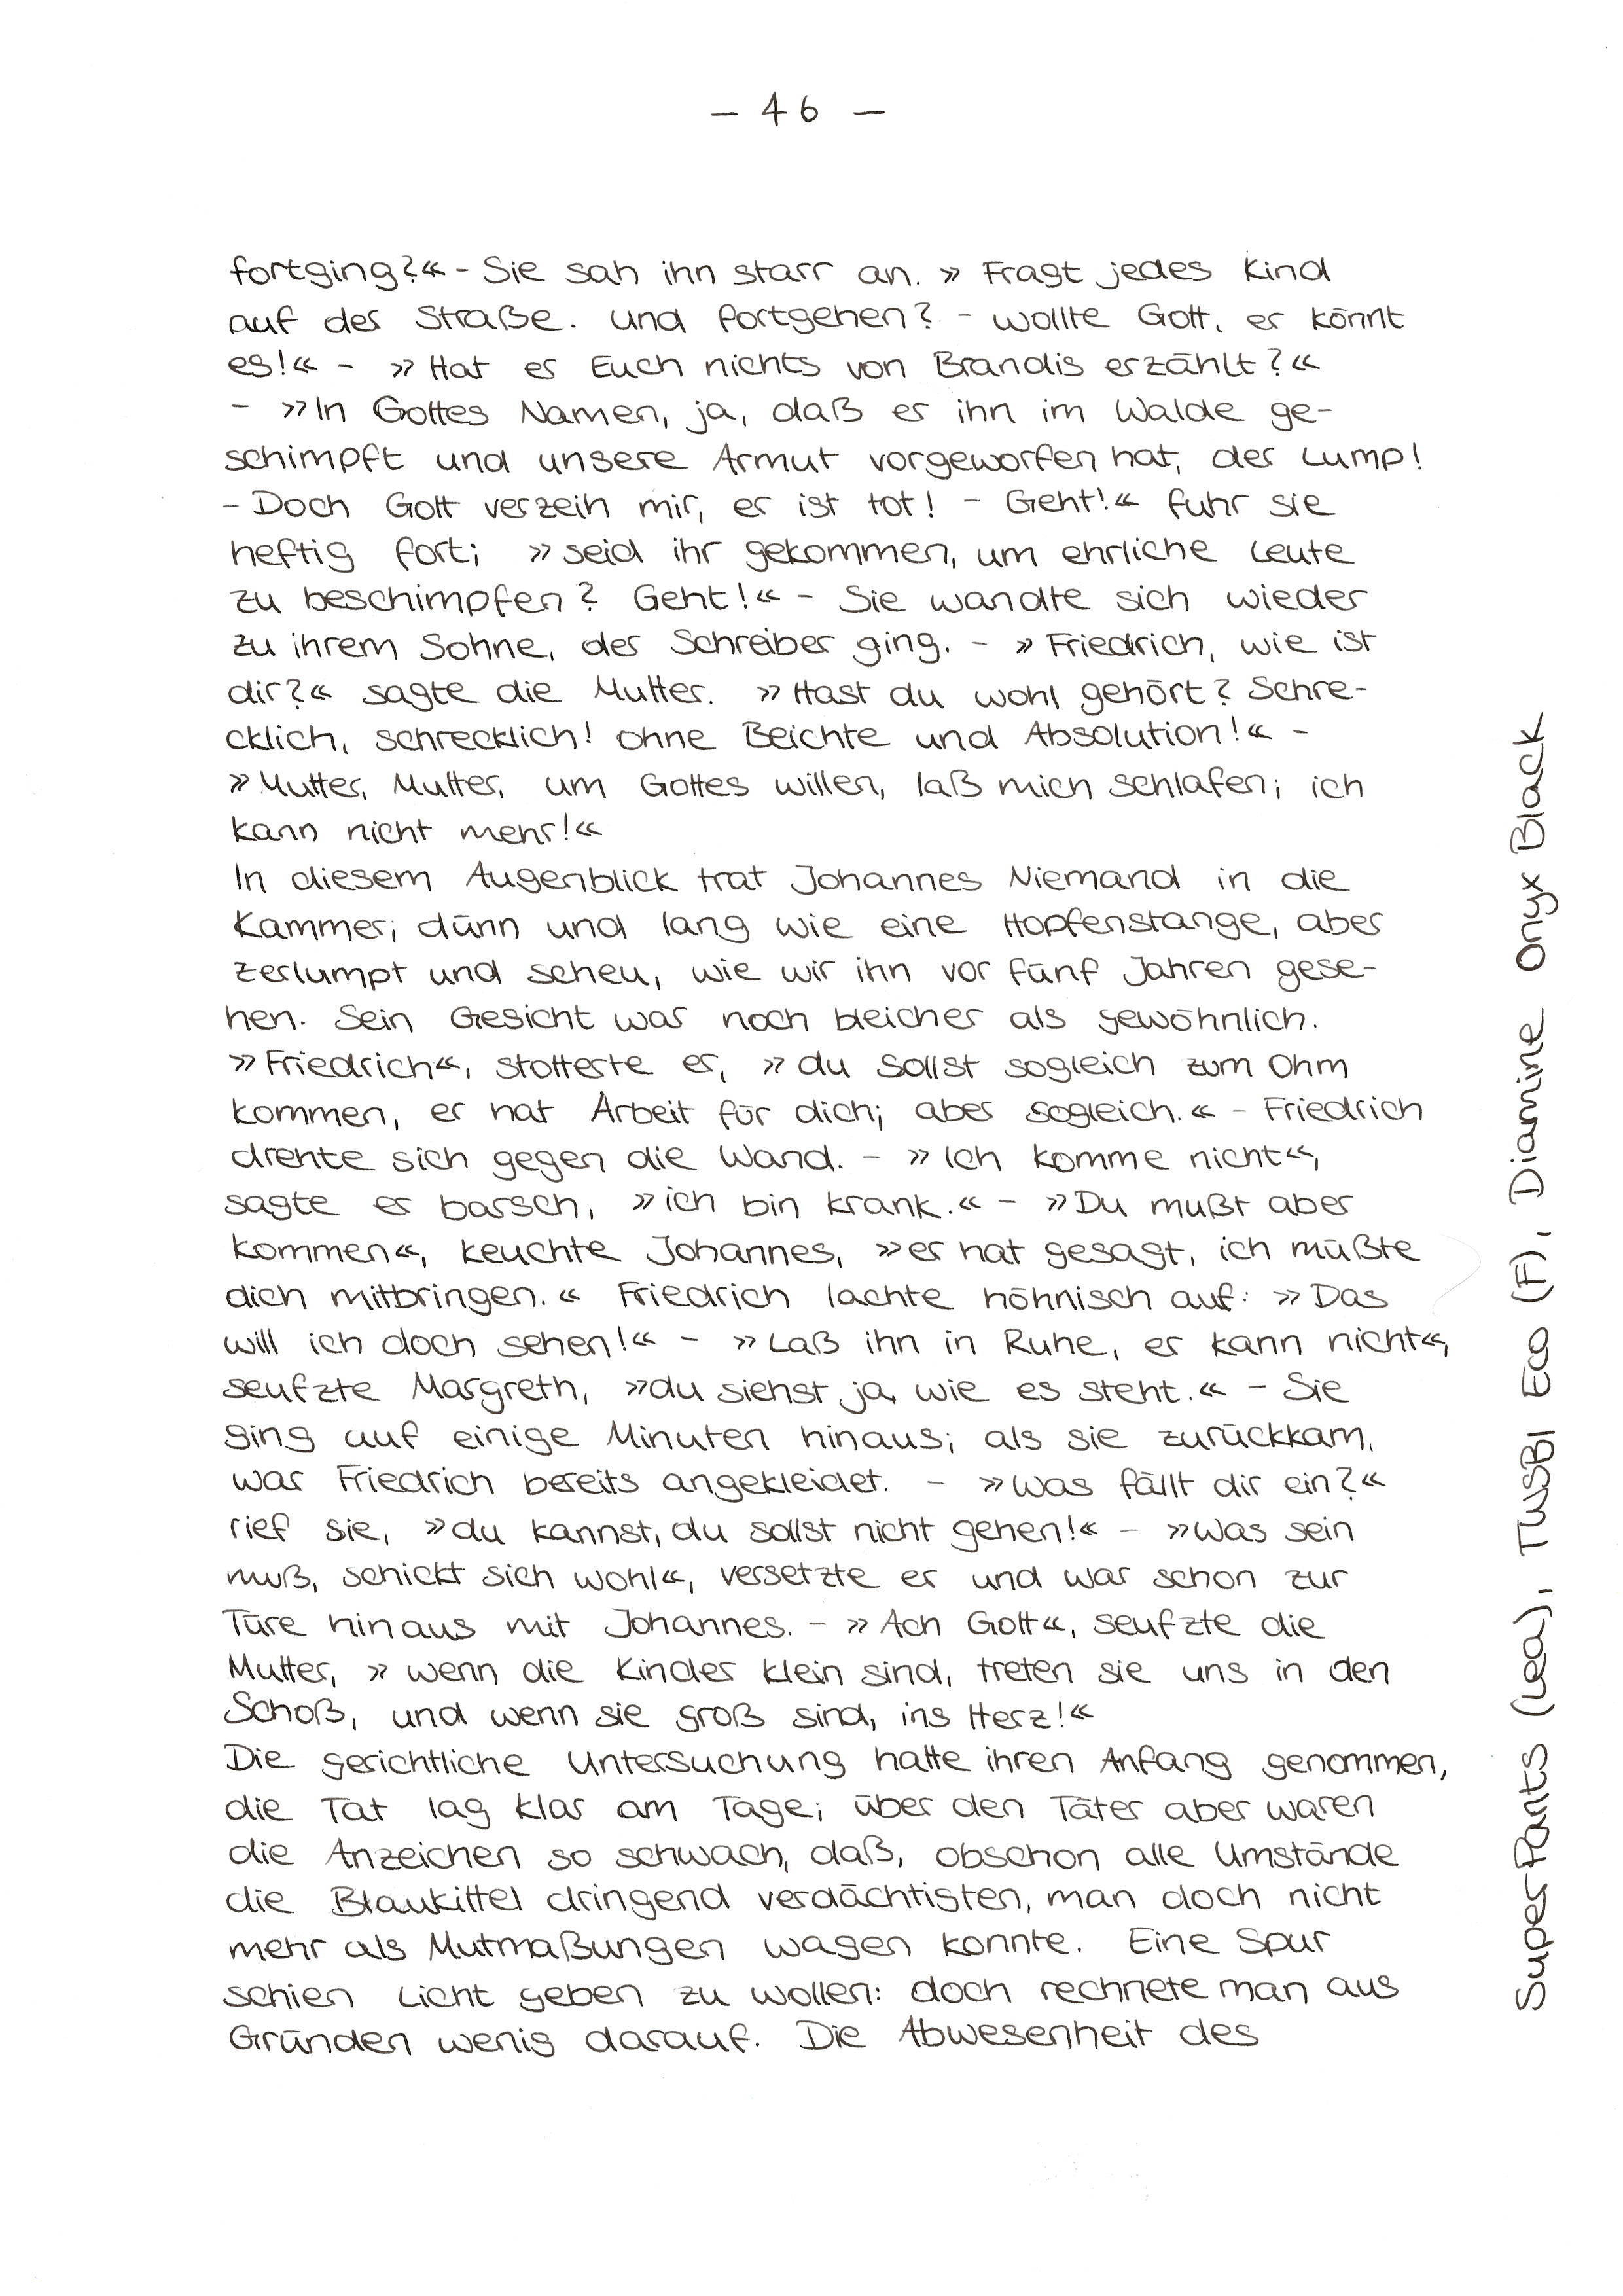 – 46 –
fortging?« – Sie sah ihn starr an. » Fragt jedes Kind
auf der Straße. Und fortgehen? – wollte Gott, er könnt
es!« – » Hat er Euch nichts von Brandis erzählt?«
– »In Gottes Namen, ja, daß er ihn im Walde ge-
schimpft und unsere Armut vorgeworfen hat, der Lump!
– Doch Gott verzeih mir, er ist tot! – Geht!« fuhr sie
heftig fort; » seid ihr gekommen, um ehrliche Leute
zu beschimpfen? Geht!« – Sie wandte sich wieder
zu ihrem Sohne, der Schreiber ging. – » Friedrich, wie ist
dir?« sagte die Mutter. » Hast du wohl gehört? Schre-
cklich, schrecklich! ohne Beichte und Absolution!« –
» Mutter, Mutter, um Gottes willen, laß mich schlafen; ich
kann nicht mehr!«
In diesem Augenblick trat Johannes Niemand in die
Kammer; dünn und lang wie eine Hopfenstange, aber
zerlumpt und scheu, wie wir ihn vor fünf Jahren gese-
hen. Sein Gesicht war noch bleicher als gewöhnlich.
» Friedrich«, stotterte er, » du sollst sogleich zum Ohm
kommen, er hat Arbeit für dich; aber sogleich.« – Friedrich
drehte sich gegen die Wand. – » Ich komme nicht«,
sagte er barsch, » ich bin krank.« – » Du mußt aber
kommen«, keuchte Johannes, » er hat gesagt, ich müßte
dich mitbringen. « Friedrich lachte höhnisch auf: » Das
will ich doch sehen!« – » Laß ihn in Ruhe, er kann nicht«,
seufzte Margreth, » du siehst ja, wie es steht.« – Sie
ging auf einige Minuten hinaus; als sie zurückkam,
war Friedrich bereits angekleidet. – » Was fällt dir ein?«
rief sie, » du kannst, du sollst nicht gehen!« – » Was sein
muß, schickt sich wohl«, versetzte er und war schon zur
Türe hinaus mit Johannes. – » Ach Gott«, seufzte die
Mutter, » wenn die Kinder klein sind, treten sie uns in den
Schoß, und wenn sie groß sind, ins Herz!«
Die gerichtliche Untersuchung hatte ihren Anfang genommen,
die Tat lag klar am Tage; über den Täter aber waren
die Anzeichen so schwach, daß, obschon alle Umstände
die Blaukittel dringend verdächtigten, man doch nicht
mehr als Mutmaßungen wagen konnte. Eine Spur
schien Licht geben zu wollen: doch rechnete man aus
Gründen wenig darauf. Die Abwesenheit des
SuperPants (Lea), TWSBI Eco (F), Diamine Onyx Black